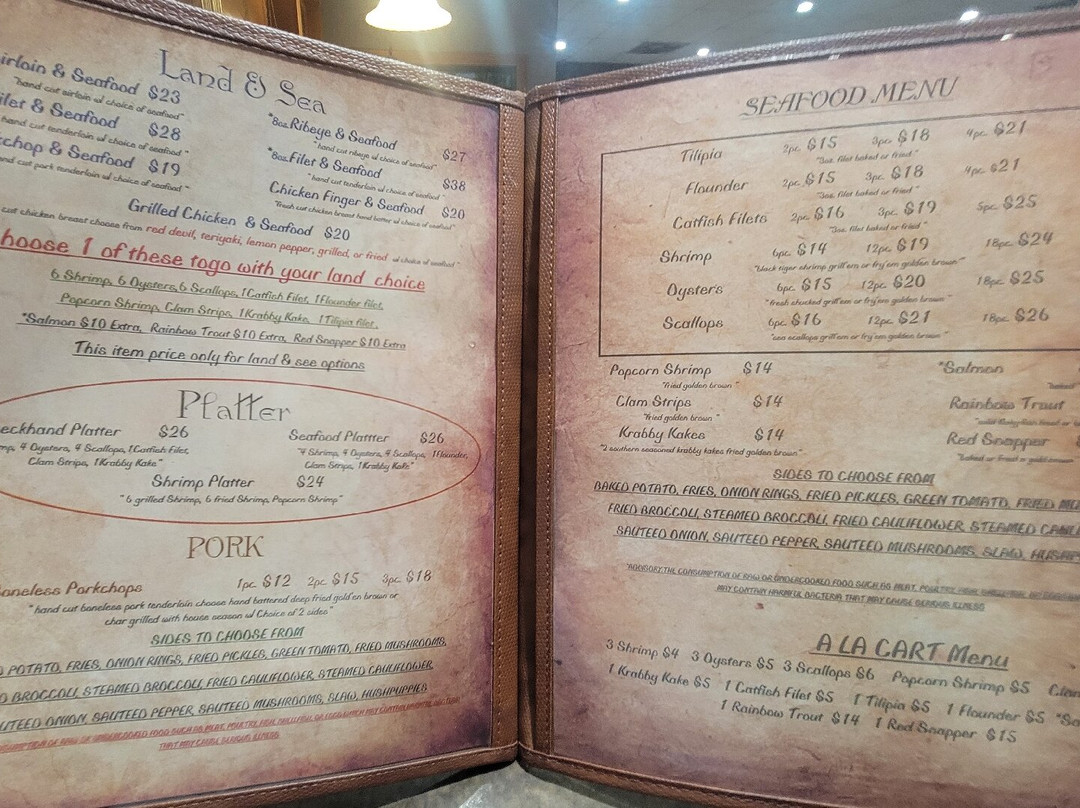 Land & Sea
irloin & Seafood $23
"hand cut sirloin w/ choice of seafood"
ilet & Seafood $28
hand cut tenderloin w/ choice of seafood"
kchop & Seafood $19
and cut pork tenderloin w/ choice of seafood"
"8oz.Ribeye & Seafood $27
"hand cut ribeye w/ choice of seafood"
"8oz.Filet & Seafood $38
"hand cut tenderloin w/ choice of seafood"
Chicken Finger & Seafood $20
"fresh cut chicken breast hand batter w/ choice of seafood"
Grilled Chicken & Seafood $20
cut chicken breast choose from red devil, teriyaki, lemon pepper, grilled, or fried w/ choice of seafood"
hoose 1 of these togo with your land choice
6 Shrimp, 6 Oysters,6 Scallops, 1Catfish Filet, 1Flounder filet,
Popcorn Shrimp, Clam Strips, 1Krabby Kake, 1Tilipia filet,
*Salmon $10 Extra, Rainbow Trout $10 Extra, Red Snapper $10 Extra
This item price only for land & see options
Platter
eckhand Platter $26
mp, 4 Oysters, 4 Scallops, 1Catfish Filet,
Clam Strips, 1Krabby Kake"
Seafood Plattter $26
"4 Shrimp, 4 Oysters, 4 Scallops, 1Flounder,
Clam Strips, 1Krabby Kake"
Shrimp Platter $24
"6 grilled Shrimp, 6 fried Shrimp, Popcorn Shrimp"
PORK
oneless Porkchops 1pc $12 2pc $15 3pc $18
"hand cut boneless pork tenderloin choose hand battered deep fried golden brown or
char grilled with house season w/ Choice of 2 sides"
SIDES TO CHOOSE FROM
POTATO, FRIES, ONION RINGS, FRIED PICKLES, GREEN TOMATO, FRIED MUSHROOMS,
BROCCOLI, STEAMED BROCCOLI, FRIED CAULIFLOWER, STEAMED CAULIFLOWER,
UTEED ONION, SAUTEED PEPPER, SAUTEED MUSHROOMS, SLAW, HUSHPUPPIES
THAT MAY CAUSE SERIOUS ILLNESS
SEAFOOD MENU
Tilipia 2pc $15 3pc $18 4pc $21
"3oz. filet baked or fried"
Flounder 2pc $15 3pc $18 4pc $21
"3oz. filet baked or fried"
Catfish Filets 2pc $16 3pc $19 5pc $25
"3oz. filet baked or fried"
Shrimp 6pc $14 12pc $19 18pc $24
"black tiger shrimp grill'em or fry'em golden brown"
Oysters 6pc $15 12pc $20 18pc $25
"fresh shucked grill'em or fry'em golden brown"
Scallops 6pc $16 12pc $21 18pc $26
"sea scallops grill'em or fry'em golden brown"
Popcorn Shrimp $14
"fried golden brown"
Clam Strips $14
"fried golden brown"
Krabby Kakes $14
"2 southern seasoned krabby kakes fried golden brown"
*Salmon
Rainbow Trout
Red Snapper
"baked or fried golden brown"
SIDES TO CHOOSE FROM
BAKED POTATO, FRIES, ONION RINGS, FRIED PICKLES, GREEN TOMATO, FRIED MU
FRIED BROCCOLI, STEAMED BROCCOLI, FRIED CAULIFLOWER, STEAMED CAULI
SAUTEED ONION, SAUTEED PEPPER, SAUTEED MUSHROOMS, SLAW, HUSHP
"ADVISORY,THE CONSUMPTION OF RAW OR UNDERCOOKED FOOD SUCH AS MEAT, POULTRY, FISH, SHELLFISH, OR EGGS
MAY CONTAIN HARMFUL BACTERIA THAT MAY CAUSE SERIOUS ILLNESS
A LA CART Menu
3 Shrimp $4 3 Oysters $5 3 Scallops $6 Popcorn Shrimp $5 Clam
1 Krabby Kake $5 1 Catfish Filet $5 1 Tilipia $5 1 Flounder $5 *Sa
1 Rainbow Trout $14 1 Red Snapper $15